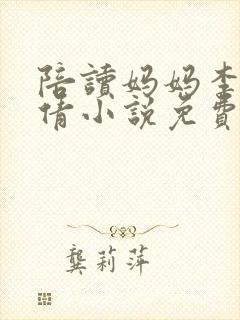 陪讀媽媽李
倩小說免費
龔莉萍